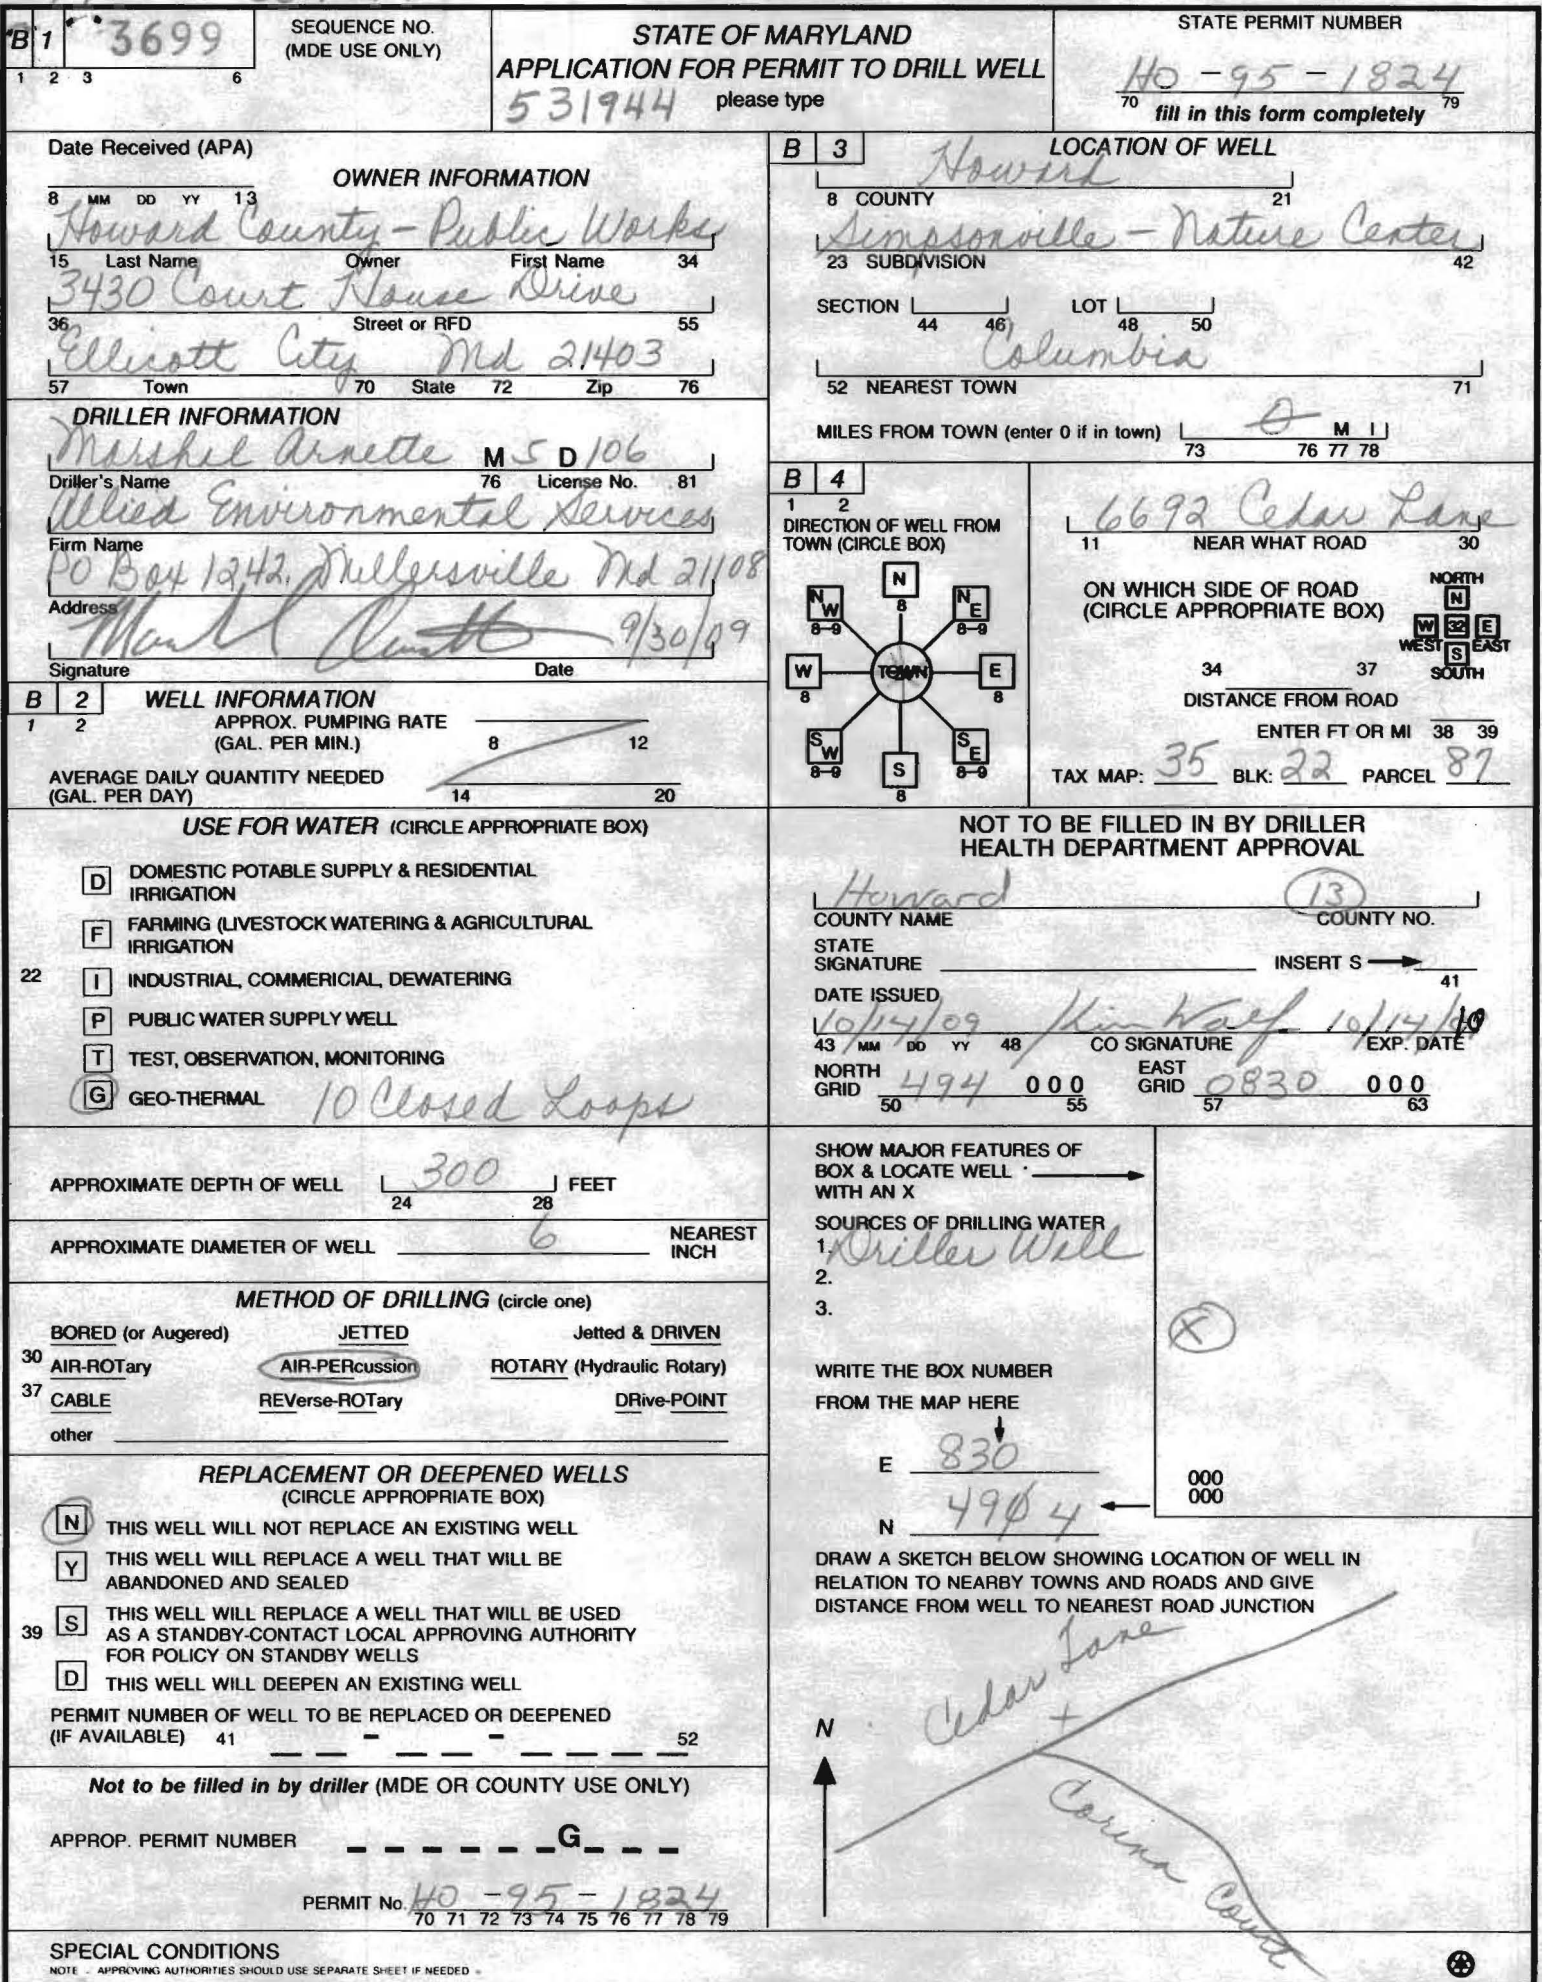 B 1 3699
1 2 3 6
SEQUENCE NO.
(MDE USE ONLY)
STATE OF MARYLAND
APPLICATION FOR PERMIT TO DRILL WELL
531944 please type
STATE PERMIT NUMBER
HO-95-1824
70 79
fill in this form completely
Date Received (APA)
OWNER INFORMATION
8 MM DD YY 13
Howard County - Public Works
15 Last Name Owner First Name 34
3430 Court House Drive
36 Street or RFD 55
Ellicott City Md 21403
57 Town 70 State 72 Zip 76
DRILLER INFORMATION
Marshel Arnette M S D 106
Driller's Name 76 License No. 81
Allied Environmental Services
Firm Name
PO Box 1242, Millersville Md 21108
Address
9/30/09
Signature Date
B 2 WELL INFORMATION
1 2
APPROX. PUMPING RATE
(GAL. PER MIN.) 8 12
AVERAGE DAILY QUANTITY NEEDED
(GAL. PER DAY) 14 20
USE FOR WATER (CIRCLE APPROPRIATE BOX)
D DOMESTIC POTABLE SUPPLY & RESIDENTIAL
IRRIGATION
F FARMING (LIVESTOCK WATERING & AGRICULTURAL
IRRIGATION
22 I INDUSTRIAL, COMMERICIAL, DEWATERING
P PUBLIC WATER SUPPLY WELL
T TEST, OBSERVATION, MONITORING
G GEO-THERMAL 10 Closed Loops
APPROXIMATE DEPTH OF WELL 300 FEET
24 28
APPROXIMATE DIAMETER OF WELL 6 NEAREST
INCH
METHOD OF DRILLING (circle one)
BORED (or Augered) JETTED Jetted & DRIVEN
30 AIR-ROTary AIR-PERcussion ROTARY (Hydraulic Rotary)
37 CABLE REVerse-ROTary DRive-POINT
other
REPLACEMENT OR DEEPENED WELLS
(CIRCLE APPROPRIATE BOX)
N THIS WELL WILL NOT REPLACE AN EXISTING WELL
Y THIS WELL WILL REPLACE A WELL THAT WILL BE
ABANDONED AND SEALED
39 S THIS WELL WILL REPLACE A WELL THAT WILL BE USED
AS A STANDBY-CONTACT LOCAL APPROVING AUTHORITY
FOR POLICY ON STANDBY WELLS
D THIS WELL WILL DEEPEN AN EXISTING WELL
PERMIT NUMBER OF WELL TO BE REPLACED OR DEEPENED
(IF AVAILABLE) 41 - - 52
Not to be filled in by driller (MDE OR COUNTY USE ONLY)
APPROP. PERMIT NUMBER G
PERMIT No. HO-95-1824
70 71 72 73 74 75 76 77 78 79
SPECIAL CONDITIONS
NOTE - APPROVING AUTHORITIES SHOULD USE SEPARATE SHEET IF NEEDED -
B 3 LOCATION OF WELL
Howard
8 COUNTY 21
Simpsonville - Nature Center
23 SUBDIVISION 42
SECTION LOT
44 46 48 50
Columbia
52 NEAREST TOWN 71
MILES FROM TOWN (enter 0 if in town) 0 M I
73 76 77 78
B 4
1 2
DIRECTION OF WELL FROM
TOWN (CIRCLE BOX)
N
8
NW NE
8-9 8-9
W TOWN E
8 8
SW SE
8-9 8-9
S
8
6692 Cedar Lane
11 NEAR WHAT ROAD 30
ON WHICH SIDE OF ROAD
(CIRCLE APPROPRIATE BOX)
NORTH
N
W 32 E
WEST S EAST
SOUTH
34 37
DISTANCE FROM ROAD
ENTER FT OR MI 38 39
TAX MAP: 35 BLK: 22 PARCEL 87
NOT TO BE FILLED IN BY DRILLER
HEALTH DEPARTMENT APPROVAL
Howard 13
COUNTY NAME COUNTY NO.
STATE
SIGNATURE INSERT S
41
DATE ISSUED
10/14/09 10/14/10
43 MM DD YY 48 CO SIGNATURE EXP. DATE
NORTH
GRID 494 000
50 55
EAST
GRID 0830 000
57 63
SHOW MAJOR FEATURES OF
BOX & LOCATE WELL
WITH AN X
SOURCES OF DRILLING WATER
1. Driller Well
2.
3.
X
WRITE THE BOX NUMBER
FROM THE MAP HERE
E 830
N 4904
000
000
DRAW A SKETCH BELOW SHOWING LOCATION OF WELL IN
RELATION TO NEARBY TOWNS AND ROADS AND GIVE
DISTANCE FROM WELL TO NEAREST ROAD JUNCTION
Cedar Lane
+
N
Corina Court